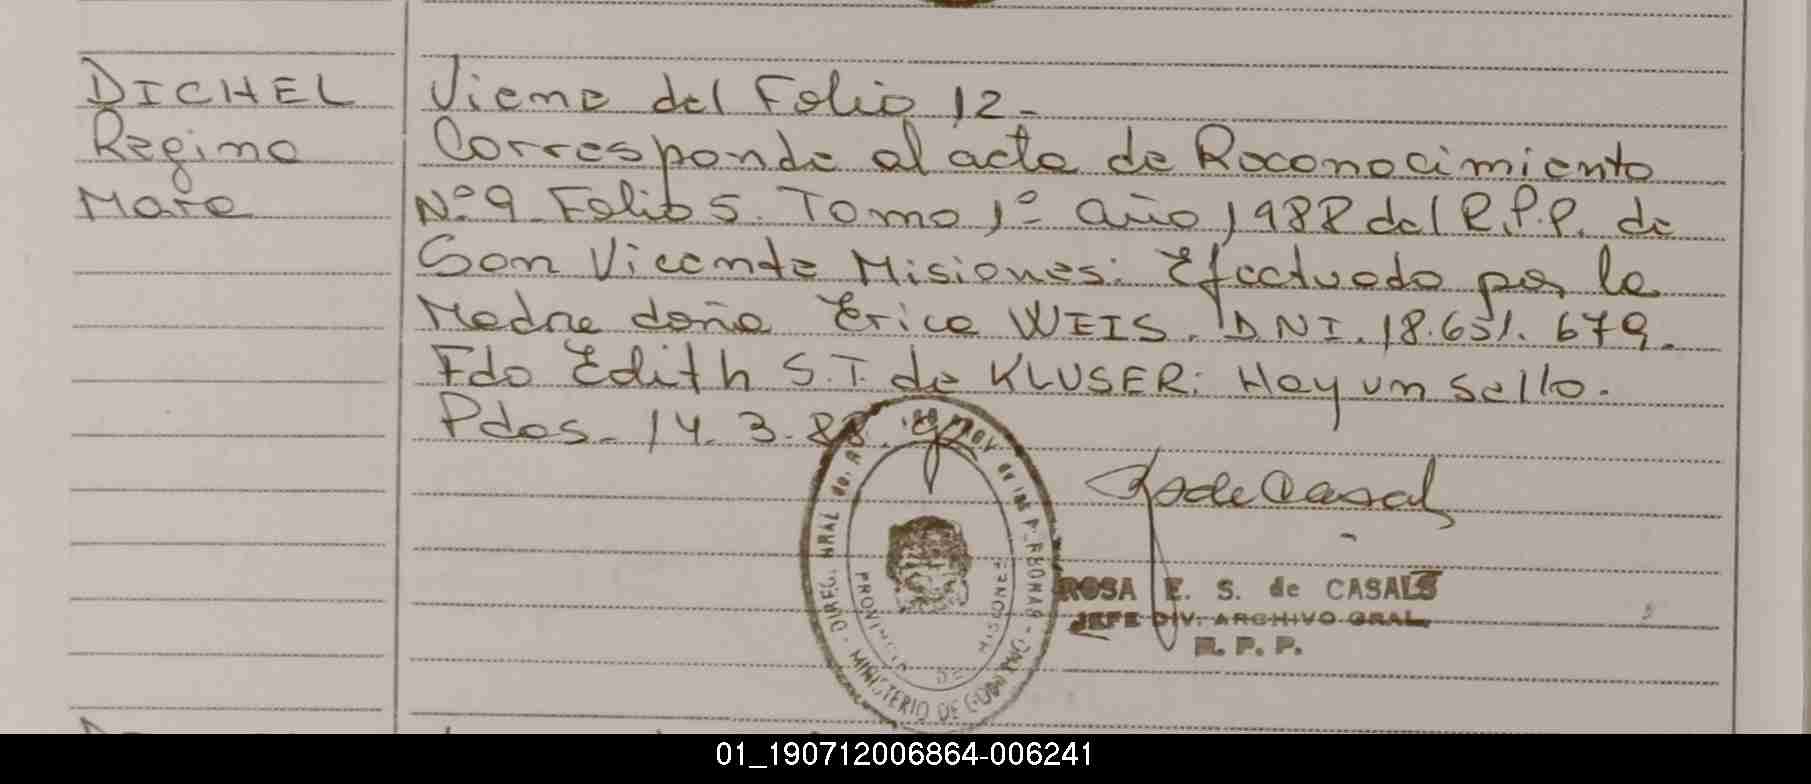 DICHEL
Regina
Mare
Viene del Folio 12-
Corresponde al acta de Reconocimiento
Nº 9 Folio 5. Tomo 1º año 1988 del R.P.P. de
San Vicente Misiones. Efectuado por la
Madre doña Erica WEIS. DNI. 18.651.679.
Fdo Edith S.T. de KLUSER. Hay un sello.
Pdas. 14.3.88.
MINISTERIO DE
PROVINCIA DE MISIONES
ROSA E. S. de CASALS
JEFE DIV. ARCHIVO GRAL.
R. P. P.
01_190712006864-006241